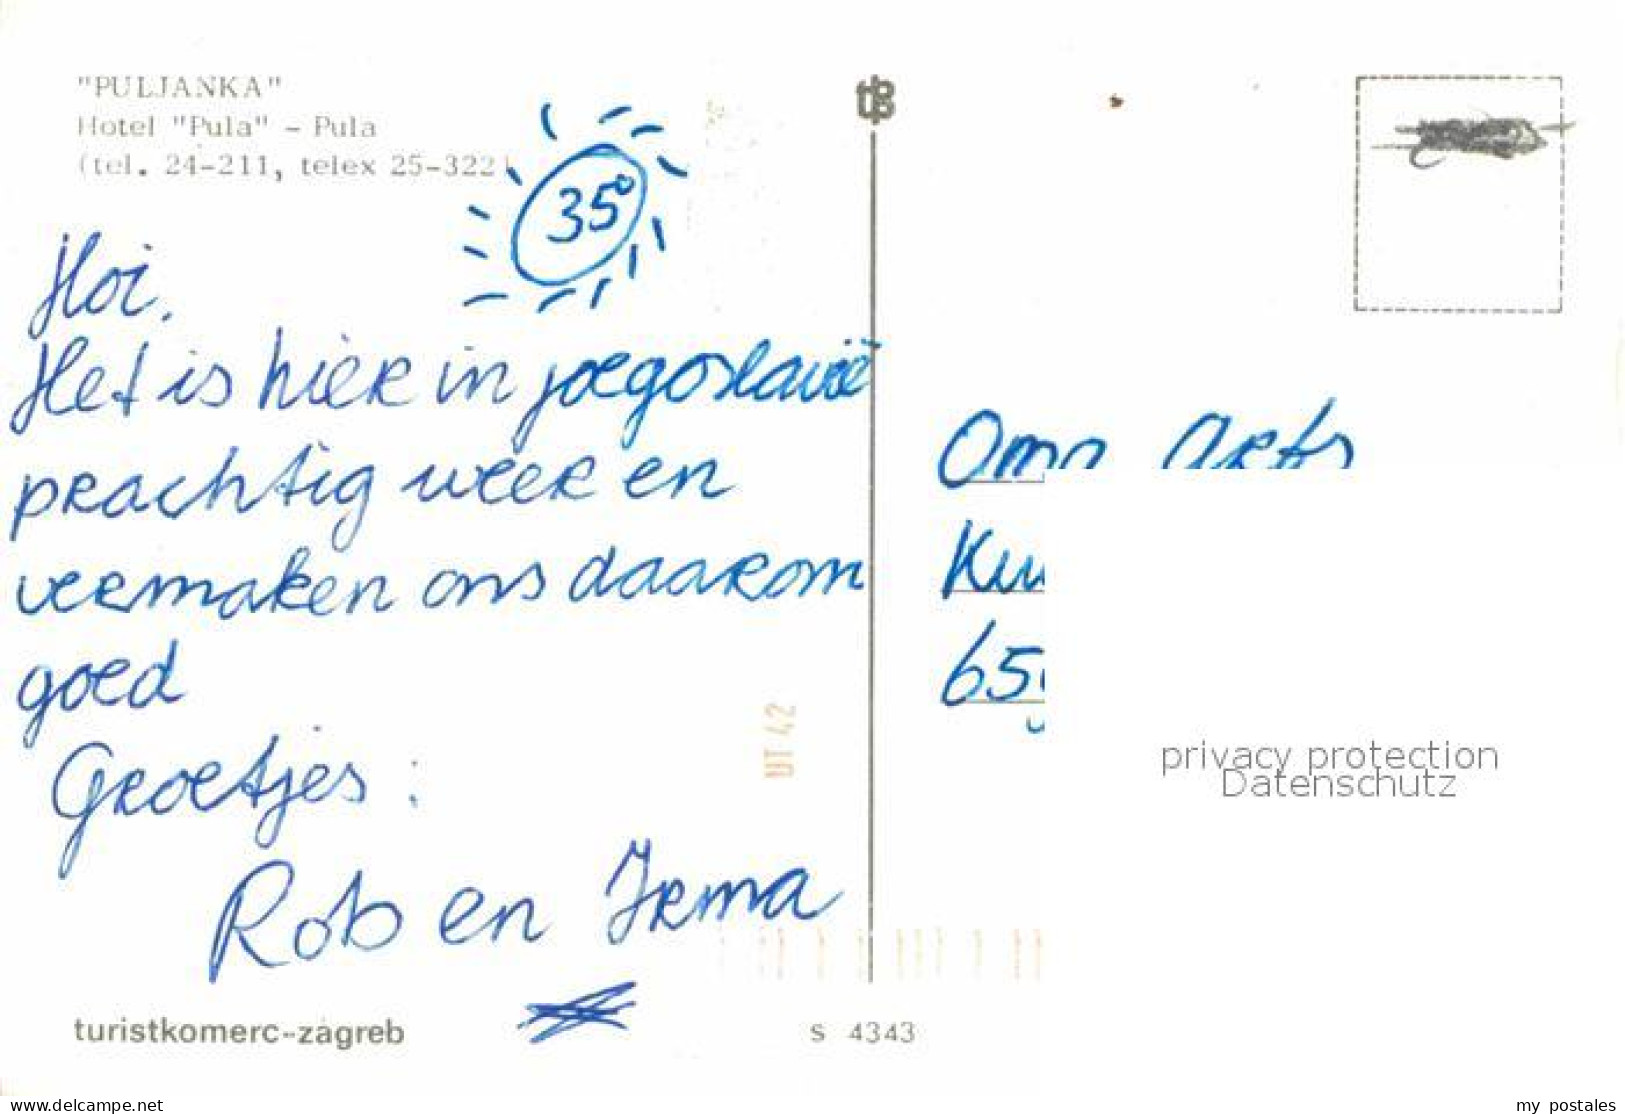 "PULJANKA"
Hotel "Pula" - Pula
(tel. 24-211, telex 25-322)
35°
Hoi,
Het is hier in joegoslavië
prachtig weer en
vermaken ons daarom
goed
Groetjes:
Rob en Irma
turistkomerc-zagreb
S 4343
UT 42
Oma Arts
65
privacy protection
Datenschutz
www.delcampe.net
my postales